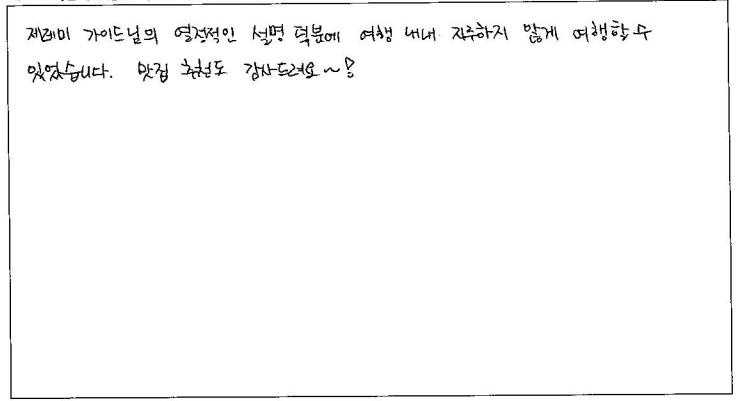 제레미 가이드님의 열정적인 설명 덕분에 여행 내내 지루하지 않게 여행할 수
있었습니다. 맛집 추천도 감사드려요~!